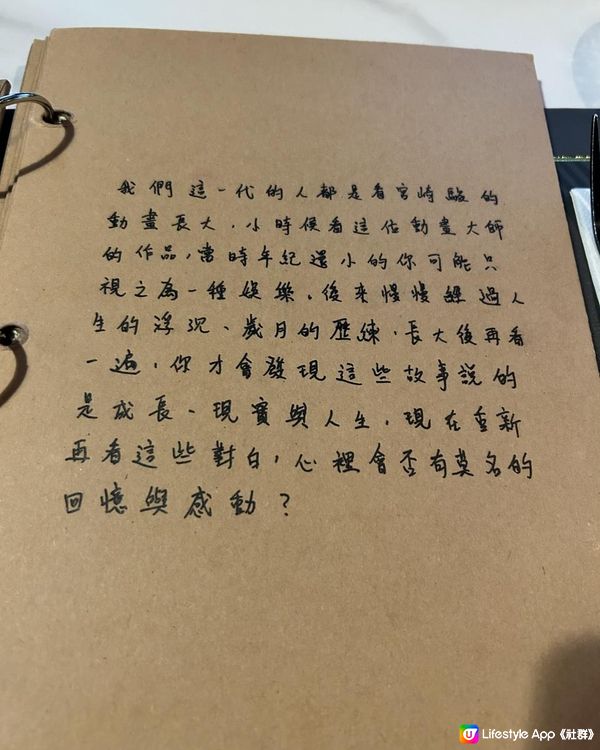 我們這一代的人都是看宮崎駿的
動畫長大，小時候看這位動畫大師
的作品，當時年紀還小的你可能只
視之為一種娛樂。後來慢慢經過人
生的浮沉、歲月的歷練，長大後再看
一遍，你才會發現這些故事說的
是成長、現實與人生，現在重新
再看這些對白，心裡會否有莫名的
回憶與感動？
U Lifestyle App《社群》